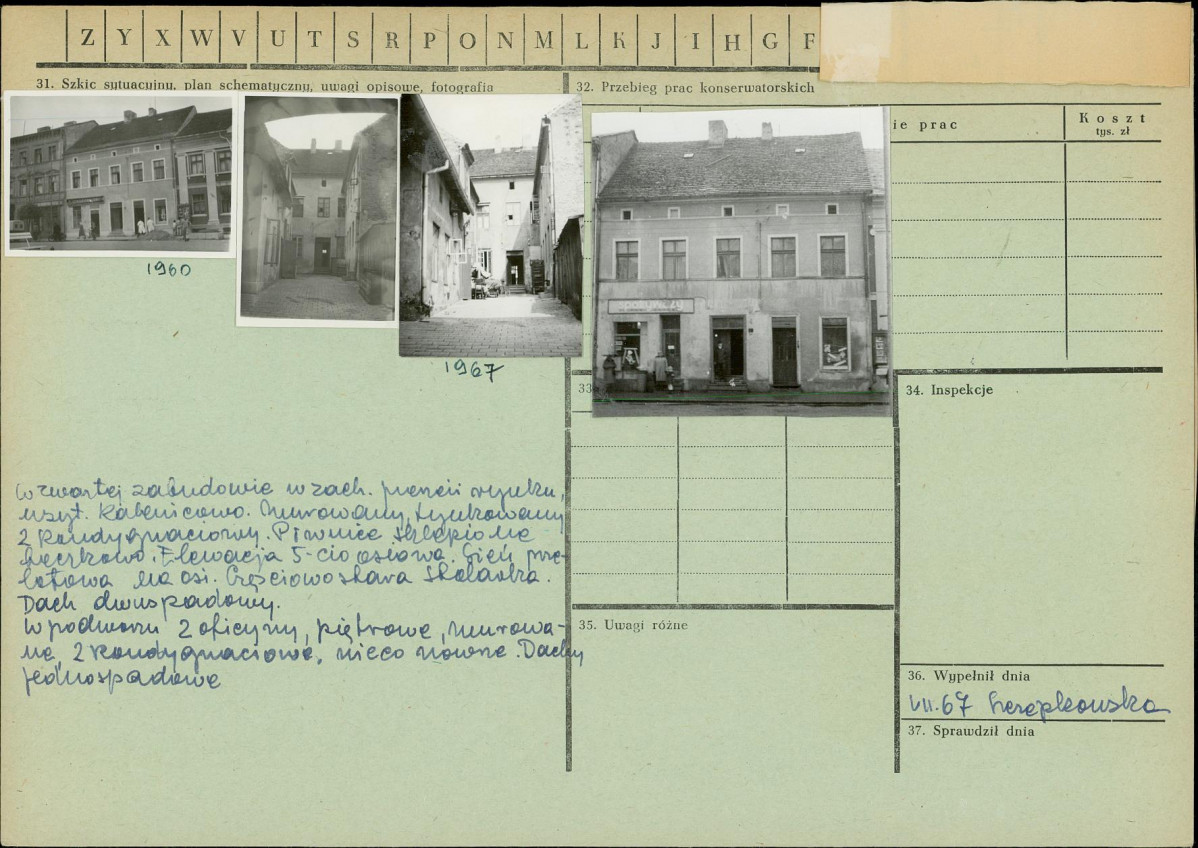 Z Y X W V U T S R P O N M L K J I H G F
31. Szkic sytuacyjny, plan schematyczny, uwagi opisowe, fotografia
32. Przebieg prac konserwatorskich
ie prac
Koszt
tys. zł
1960
1967
33
34. Inspekcje
W zwartej zabudowie w zach. pierzei rynku,
usyt. kalenicowo. Murowany, tynkowany
2 kondygnaciowy. Piwnice sklepione
beczkowo. Elewacja 5-cio osiowa. Sień prze-
lotowa na osi. Częściowo stara stolarka.
Dach dwuspadowy.
W podworzu 2 oficyny, piętrowe, murowa-
ne, 2 kondygnaciowe, nieco nowsze. Dachy
jednospadowe
35. Uwagi różne
36. Wypełnił dnia
VII.67
37. Sprawdził dnia